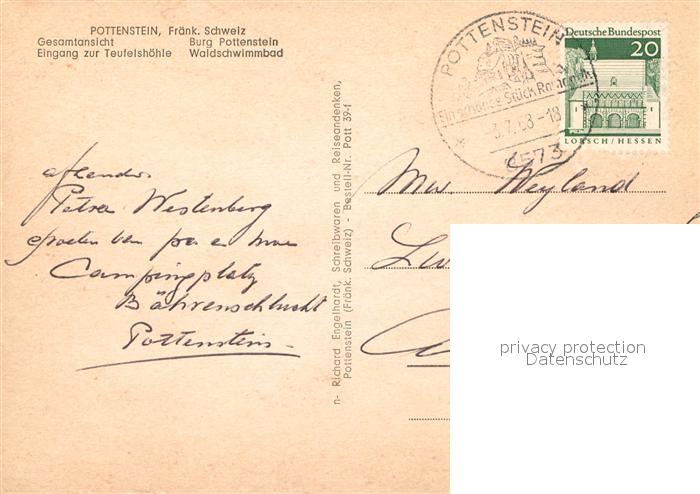 POTTENSTEIN, Fränk. Schweiz
Gesamtansicht Burg Pottenstein
Eingang zur Teufelshöhle Waldschwimmbad
POTTENSTEIN
Stück Romantik
.7.68-18
8573
Deutsche Bundespost
20
LORSCH/HESSEN
Petra Westenberg
Campingplatz
Bährenschlucht
Pottenstein
n- Richard Engelhardt, Schreibwaren und Reiseandenken,
Pottenstein (Fränk. Schweiz) - Bestell-Nr. Pott 39-f
Weyland
privacy protection
Datenschutz